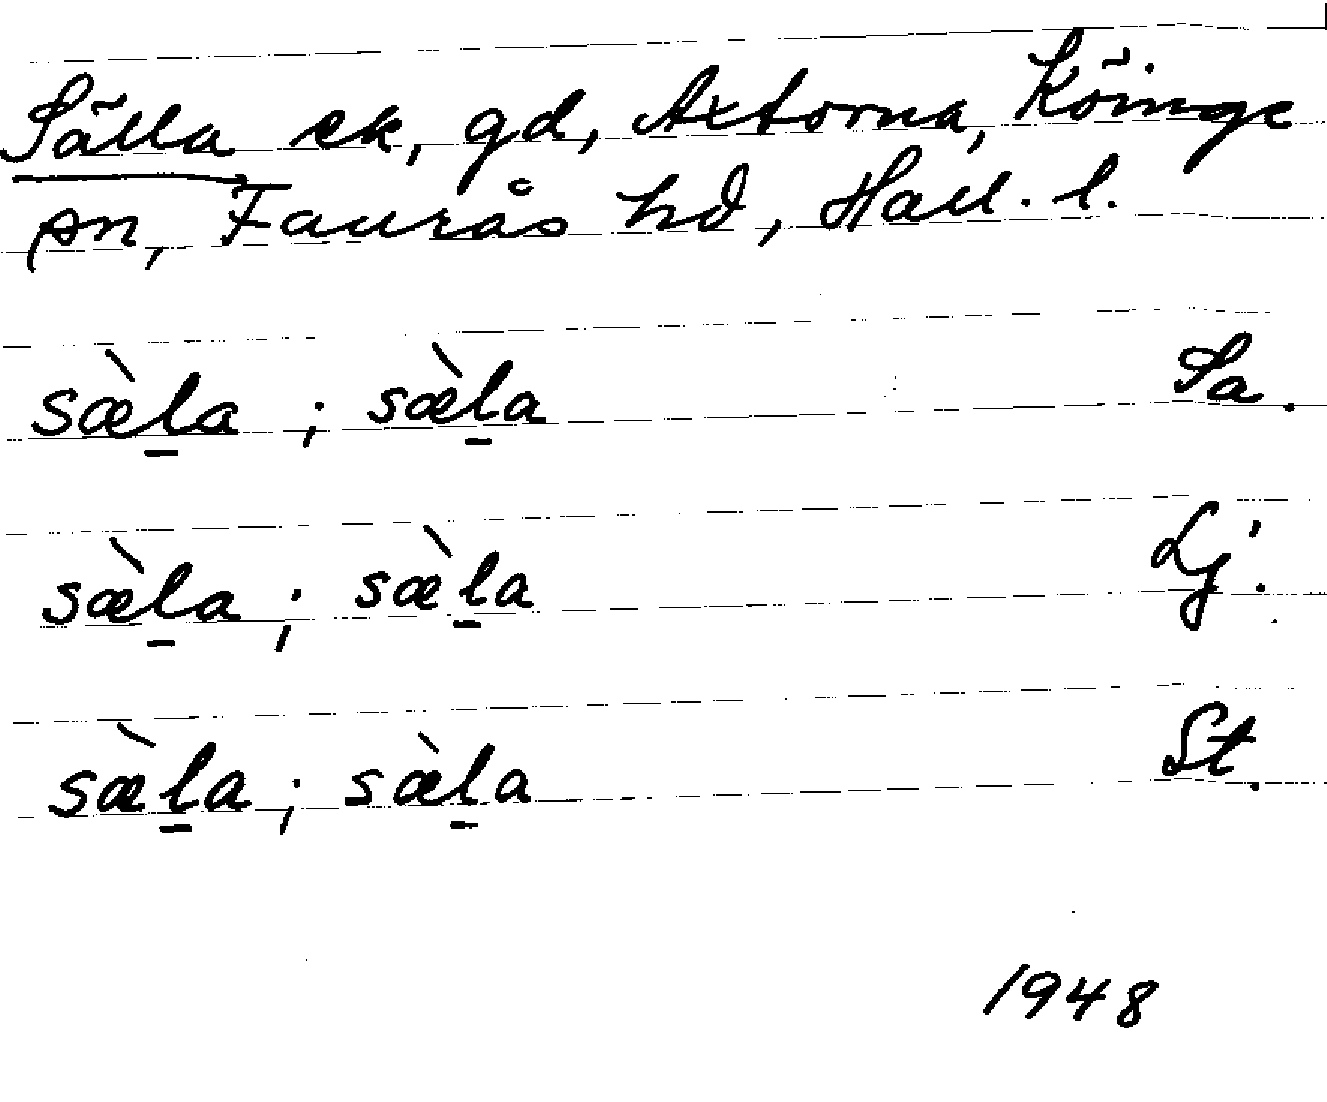 Sälla ek, gd, Axtorna, Köinge
sn, Faurås hd, Hall. l.
sæ̀l̠a ; sæ̀l̠a Sa.
sæ̀l̠a ; sæ̀l̠a Lj.
sæ̀l̠a ; sæ̀l̠a St.
1948